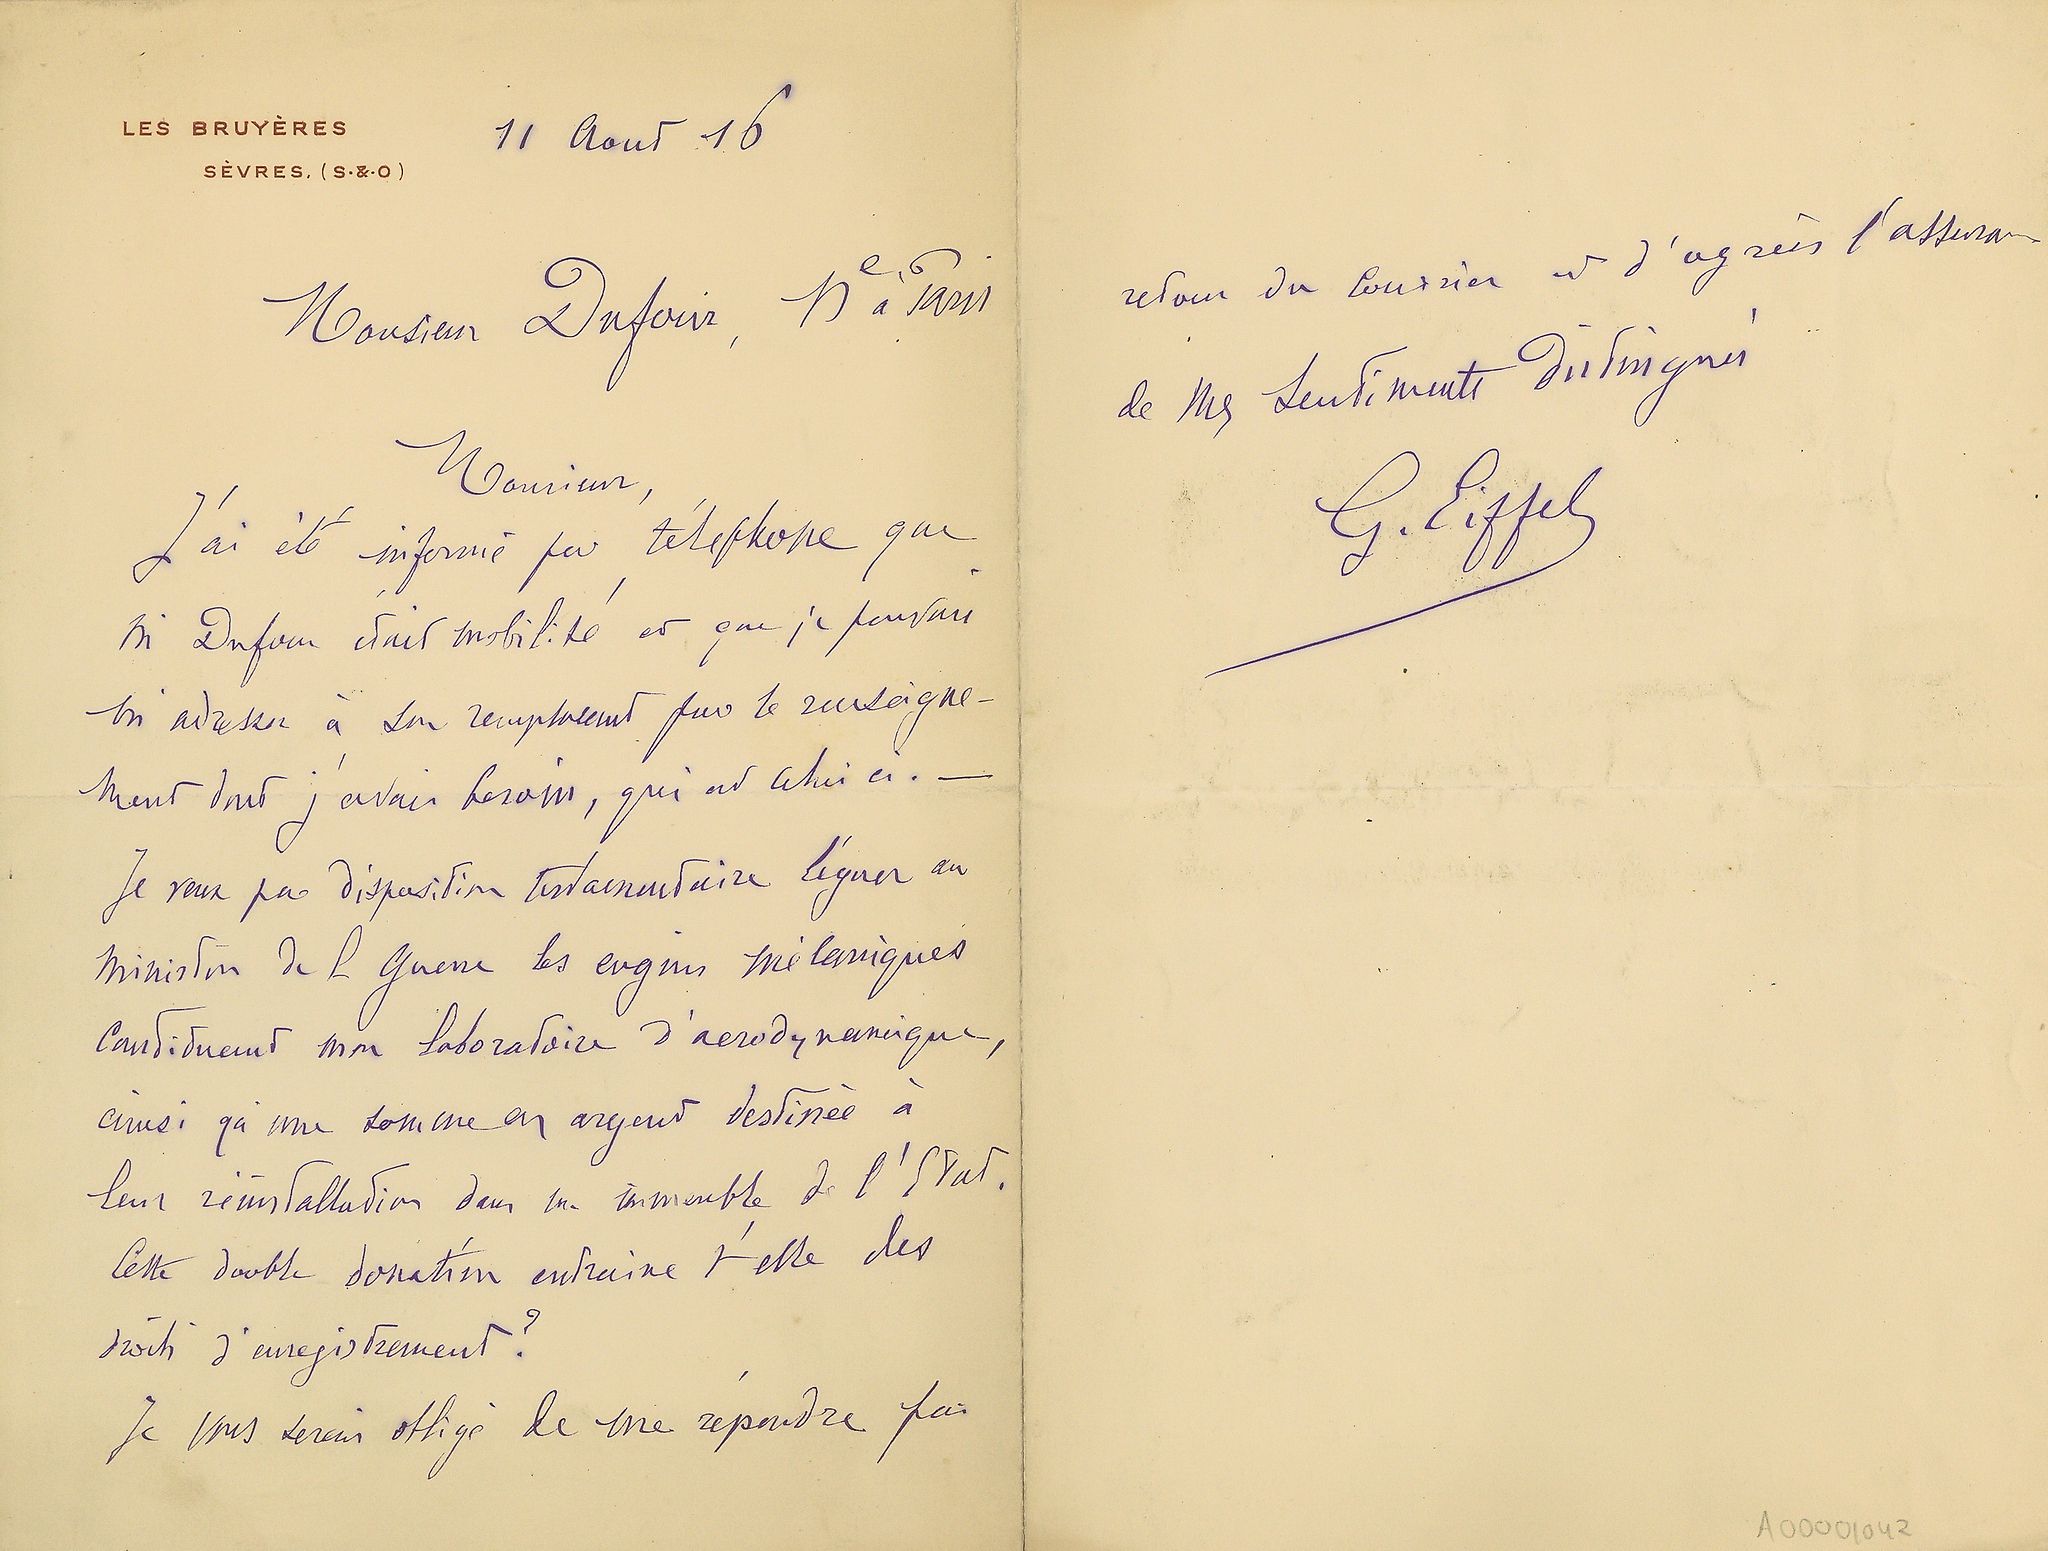 LES BRUYÈRES
SÈVRES. (S.&.O)
11 Aout 16
Monsieur Dufour, Nre à Paris
Monsieur,
J'ai été informé par téléphone que
M Dufour était mobilisé et que je pouvais
m'adresser à son remplacant pour le renseigne-
ment dont j'avais besoin, qui est celui ci. —
Je veux par disposition testamentaire léguer au
ministère de la Guerre les engins mécaniques
constituant mon laboratoire d'aerodynamique,
ainsi qu'une somme en argent destinée à
leur réinstallation dans un immeuble de l'État.
Cette double donation entraine t'elle des
droits d'enregistrement?
Je vous serais obligé de me répondre par
retour du courrier et d'agréer l'assurance
de mes sentiments distingués
G. Eiffel
A00001042